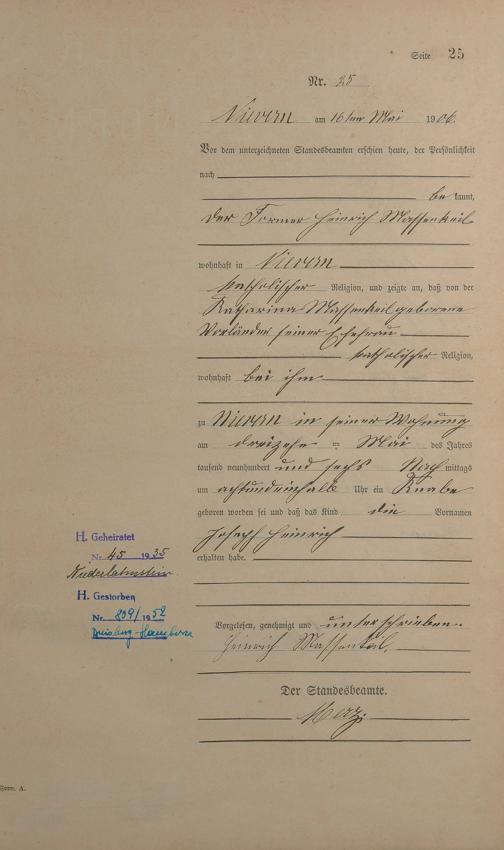 Seite 25
Nr. 25
Nievern am 16ten Mai 1906.
Vor dem unterzeichneten Standesbeamten erschien heute, der Persönlichkeit
nach
be kannt,
der Former Heinrich Massenkeil
wohnhaft in Nievern
katholischer Religion, und zeigte an, daß von der
Katharina Massenkeil geborene
Vorländer seiner Ehefrau
katholischer Religion,
wohnhaft bei ihm
zu Nievern in seiner Wohnung
am dreizehn = Mai des Jahres
tausend neunhundert und sechs Nach mittags
um achtundeinhalb Uhr ein Knabe
geboren worden sei und daß das Kind die Vornamen
Joseph Heinrich
erhalten habe.
Vorgelesen, genehmigt und unterschrieben.
Heinrich Massenkeil.
Der Standesbeamte.
Merz
H. Geheiratet
Nr. 45 1935
Niederlahnstein
H. Gestorben
Nr. 809/1952
Duisburg-Hamborn
Form. A.